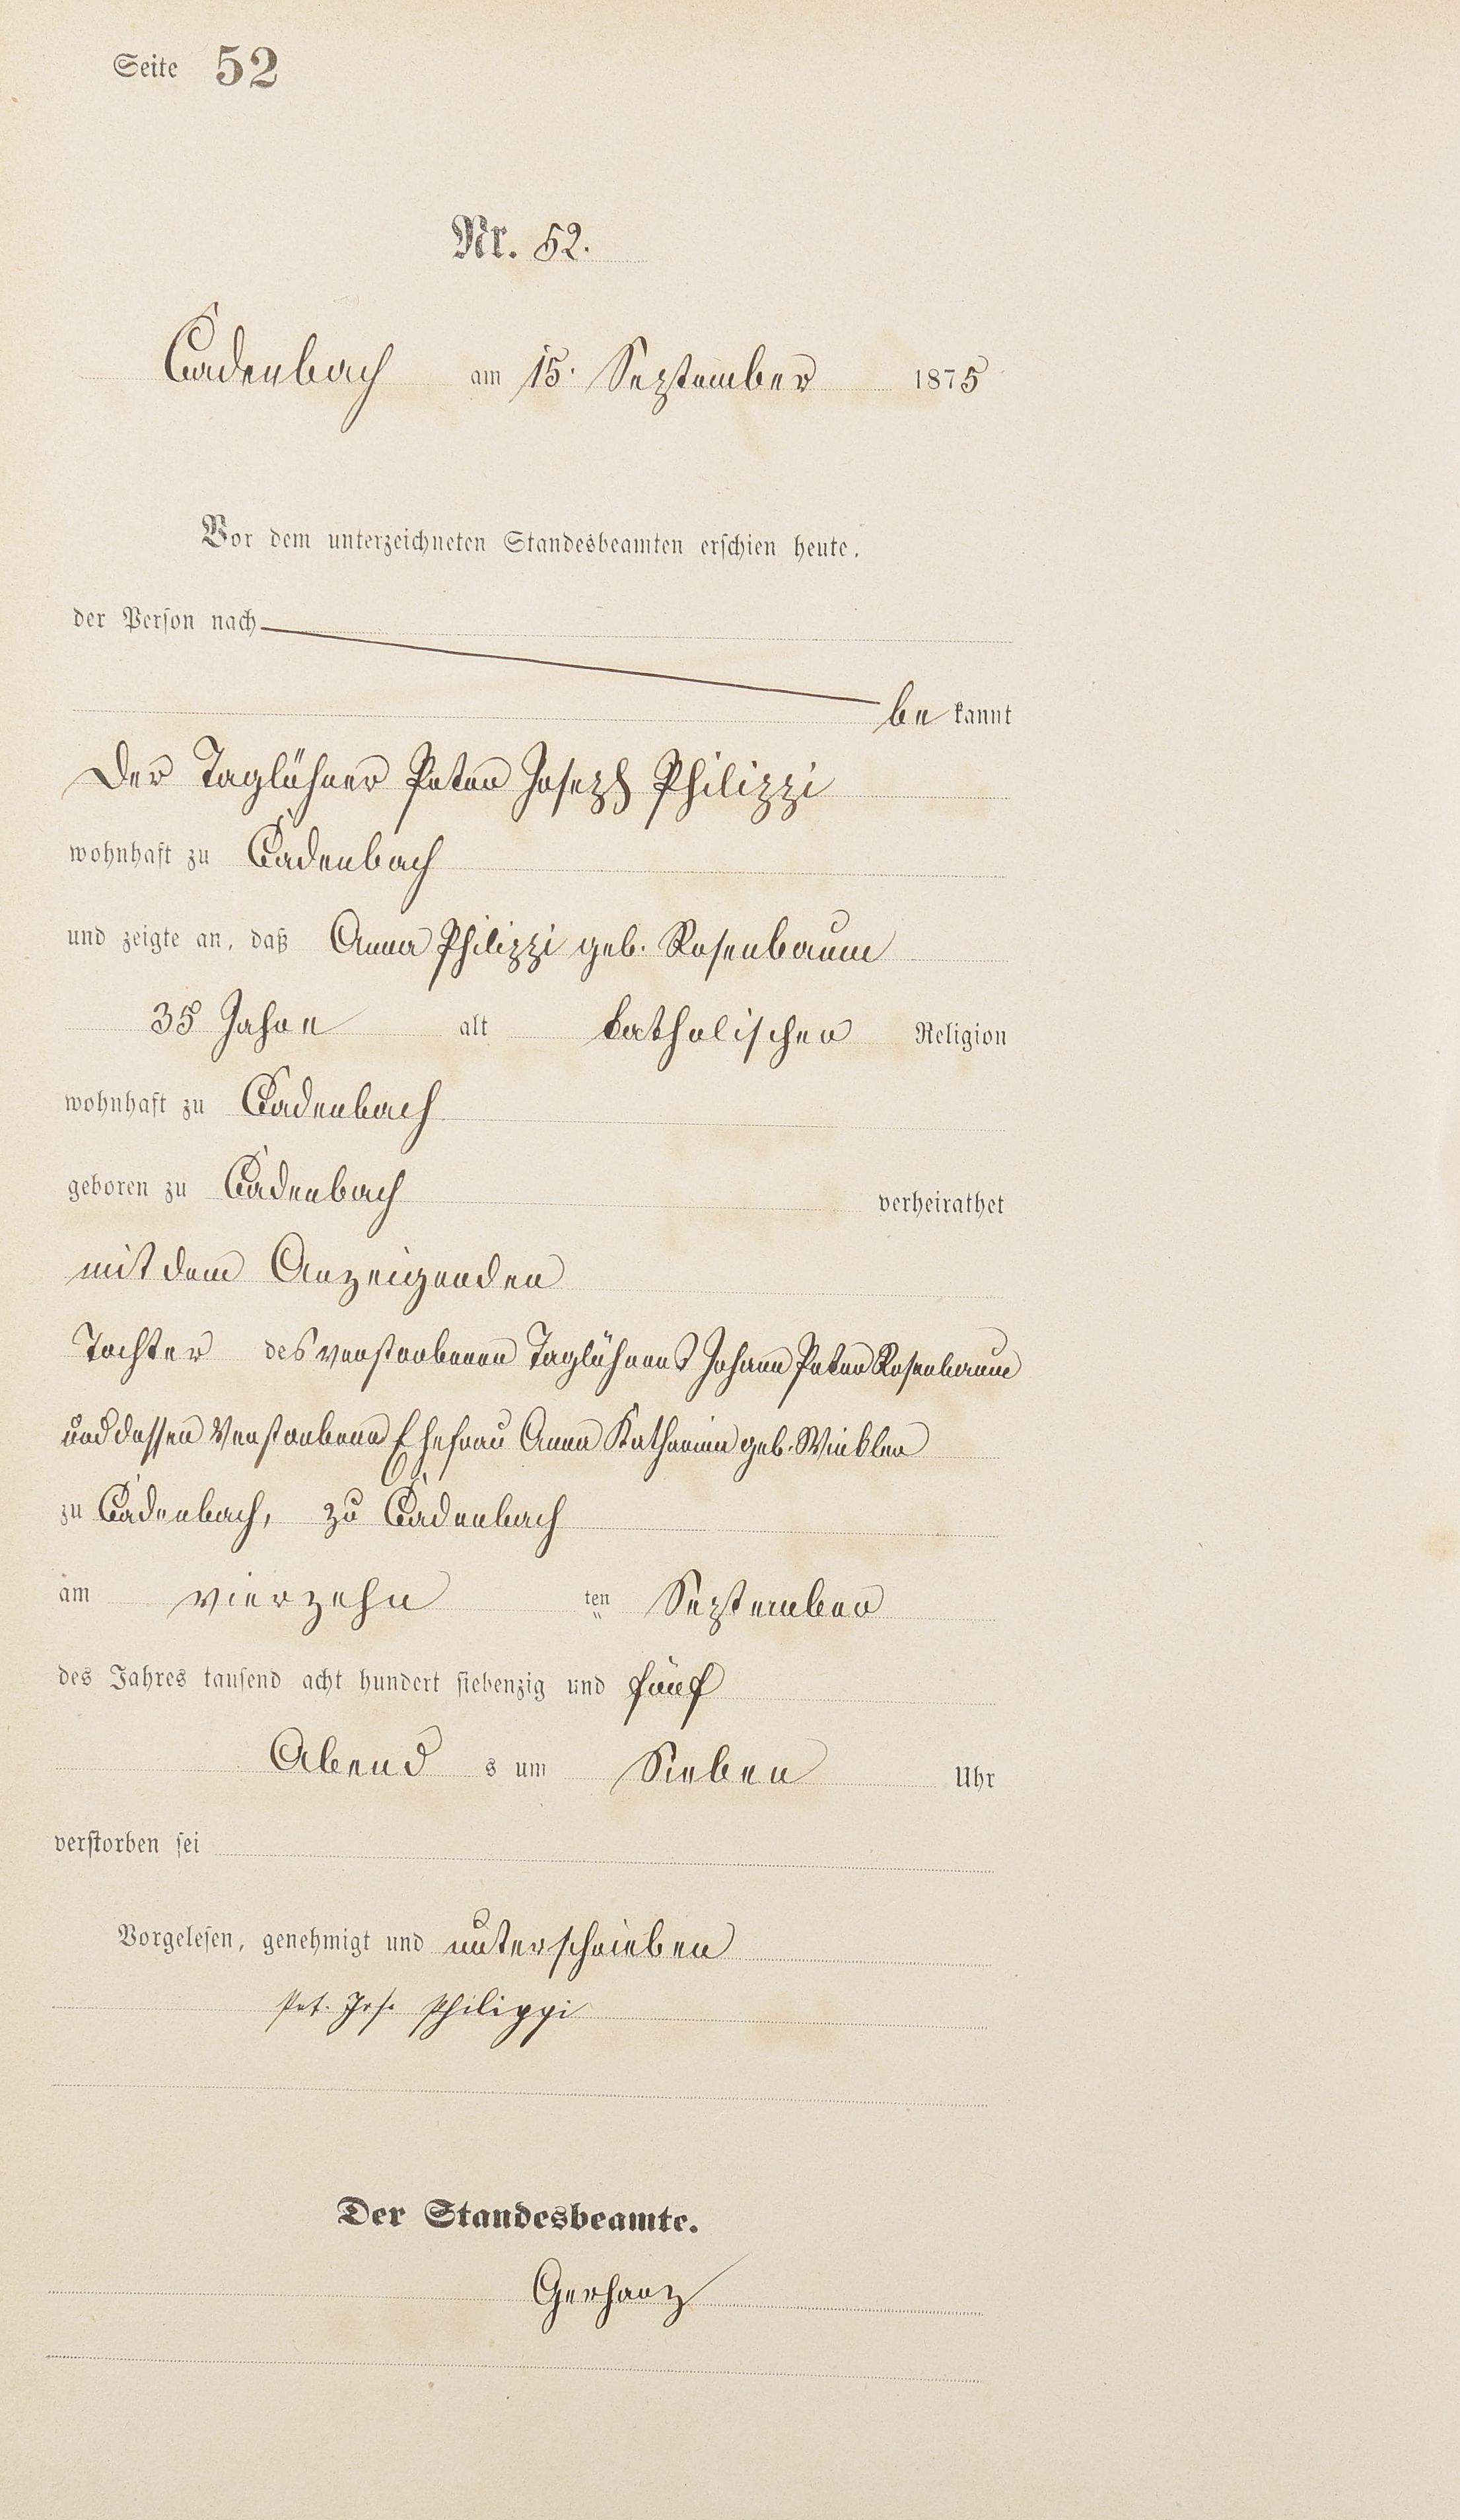 Seite 52
Nr. 52.
Cadenbach am 15. September 1875
Vor dem unterzeichneten Standesbeamten erschien heute,
der Person nach
be kannt
Der Taglöhner Peter Joseph Philippi
wohnhaft zu Cadenbach
und zeigte an, daß Anna Philippi geb. Rosenbaum
35 Jahre alt katholischer Religion
wohnhaft zu Cadenbach
geboren zu Cadenbach verheirathet
mit dem Anzeigenden
Tochter des verstorbenen Taglöhners Johann Peter Rosenbaum
und dessen Verstorbene Ehefrau Anna Katharina geb. Winkler
zu Cadenbach, zu Cadenbach
am vierzehn ten September
des Jahres tausend acht hundert siebenzig und fünf
Abend s um Sieben Uhr
verstorben sei
Vorgelesen, genehmigt und unterschrieben
Pet. Jos. Philippi
Der Standesbeamte.
Gerharz